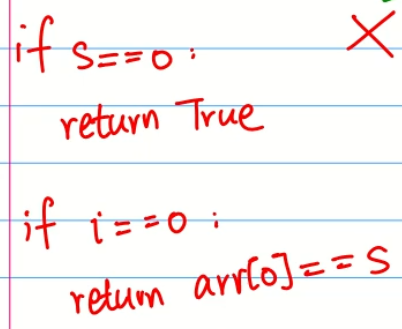 if s==0:
return True
if i==0:
return arr[0]==S